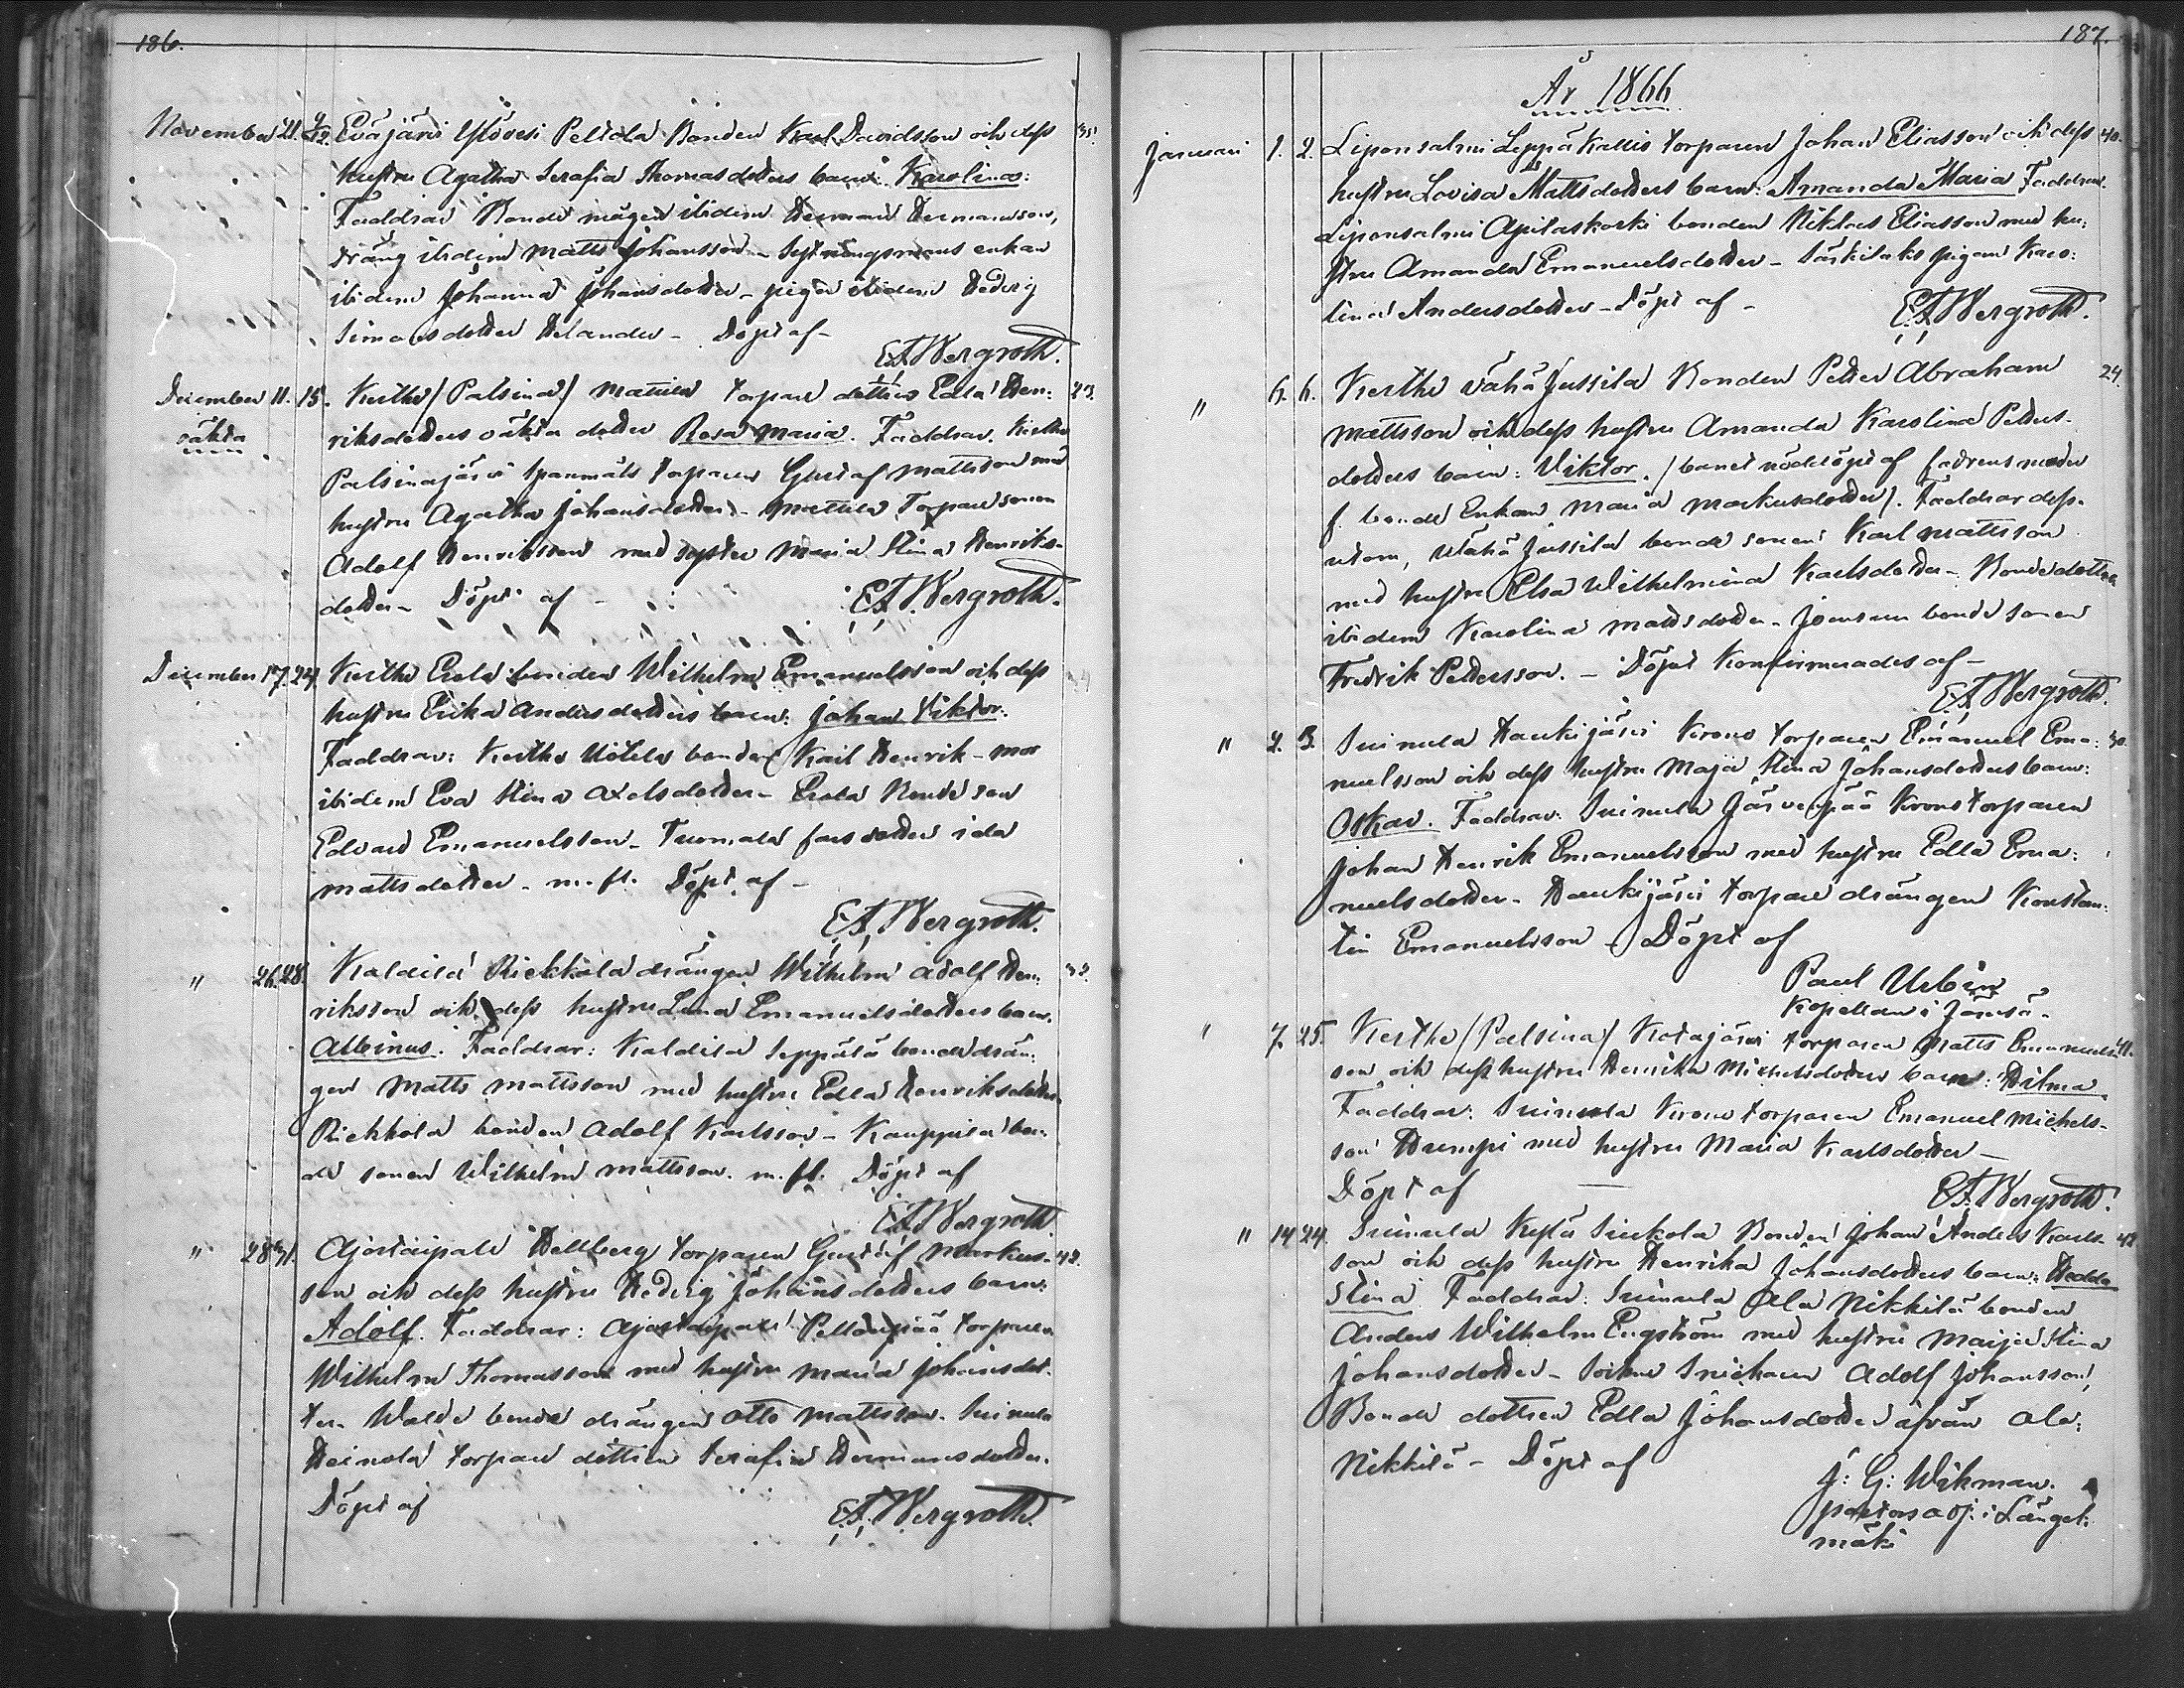 186.
November 21. 9/12. Eväjärvi Ylövesi Peltola Bonden Karl Davidsson och dess 35.
hustru Agatha Serafia Thomasdotters barn: Karolina:
Faddrar Bonde mågen ibidem Herman Hermansson,
dräng ibidem Matts Johansson - Sytningsmans enkan
ibidem Johanna Johansdotter - piga ibidem Hedvig
Simonsdotter Helander - Döpt af -
E.F. Wergroth.
December 11. 15. Kerthe (Palsina) Mattila torpare dottren Edla Hen: 23.
oäkta
riksdotters oäkta dotter Rosa Maria. Faddrar. Kerthe
Palsinajärvi Spannmåls torparen Gustaf Mattsson med
hustru Agatha Johansdotter - Mattila Torpare sonen
Adolf Henriksson med syster Maria Stina Henriks-
dotter - Döpt af -
E.F. Wergroth.
December 17. 24. Kerthe Erola bonden Wilhelm Emanuelsson och dess
hustru Erika Andersdotters barn: Johan Viktor.
Faddrar: Kerthe Uotila bonden Karl Henrik - mor
ibidem Eva Stina Axelsdotter - Erola Bonde son
Edvard Emanuelsson - Tuomala fars dotter Ida
Mattsdotter - m. fl. Döpt af -
E.F. Wergroth.
" 26. 28. Kaldila Riekkola drängen Wilhelm Adolf Hen: 32.
riksson och dess hustru Lena Emanuelsdotters barn.
Albinus. Faddrar: Kaldila Seppälä bonde drän:
gen Matts Mattsson med hustru Edla Henriksdotter
Riekkola bonden Adolf Karlsson - Kauppila bon:
de sonen Wilhelm Mattsson. m. fl. Döpt af
E.F. Wergroth
" 28. 31. Ajostaipale Hellberg torparen Gustaf Markus- 42.
son och dess hustru Hedvig Johansdotters barn:
Adolf. Faddrar: Ajostaipale Pellonpää torparen
Wilhelm Thomasson med hustru Maria Johansdot-
ter - bonde drängen Otto Mattsson. Suinula
Heinola torpare dottren Serafia Hermansdotter.
Döpt af
E.F. Wergroth.
187.
År 1866
Januari 1. 2. Liponsalmi Leppäkallio torparen Johan Eliasson och dess 40.
hustru Lovisa Mattsdotters barn: Amanda Maria Faddrar.
Liponsalmi Apilaskorki bonden Niklas Eliasson med hu:
stru Amanda Emanuelsdotter - Särkilaks pigan Karo:
lina Andersdotter - Döpt af -
E.F. Wergroth.
" 6. 6. Kerthe Vähä Jussila Bonden Petter Abraham 24.
Mattsson och dess hustru Amanda Karolina Petters-
dotters barn: Viktor. (barnet nöddöpt af fadrens moder
f. bonde Enkan Maria Markusdotter). Faddrar dess-
utom, Vähä Jussila bonde sonen Karl Mattsson
med hustru Elsa Wilhelmina Karlsdotter - Bonde dottren
ibidem Karolina Mattsdotter - Joensuu bonde sonen
Fredrik Pettersson. - Döpet Konfirmerades af -
E.F. Wergroth.
" 2. 3. Suinula Haukijärvi Krono torparen Emanuel Ema: 30.
nuelsson och dess hustru Maja Stina Johansdotters barn:
Oskar. Faddrar: Suinula Järvenpää Krono torparen
Johan Henrik Emanuelsson med hustru Edla Ema:
nuelsdotter - Haukijärvi torpare drängen Konstan:
tin Emanuelsson - Döpt af
Paul Urbin
Kapellan i Jämsä.
" 7. 25. Kerthe (Palsina) Kotajärvi torparen Matts Emanuels: 41.
son och dess hustru Henrika Michelsdotters barn: Hilma.
Faddrar: Suinula Krono torparen Emanuel Michels-
son Humpi med hustru Maria Karlsdotter -
Döpt af -
E.F. Wergroth.
" 14. 24. Suinula Kylä Siukola Bonden Johan Anders Karls- 42.
son och dess hustru Henrika Johansdotters barn: Hedda
Stina. Faddrar: Suinula Ala Nikkilä bonden
Anders Wilhelm Engström med hustru Maija Stina
Johansdotter - Socken Snickaren Adolf Johansson,
Bonde dottren Edla Johansdotter ifrån Ala:
Nikkilä - Döpt af
J: G: Wikman.
pastors adj: i Längel:
mäki